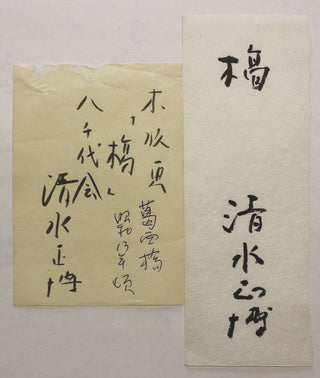 橋
清水正博
木版画
葛西橋
昭和13年頃
「橋」
八千代会
清水正博